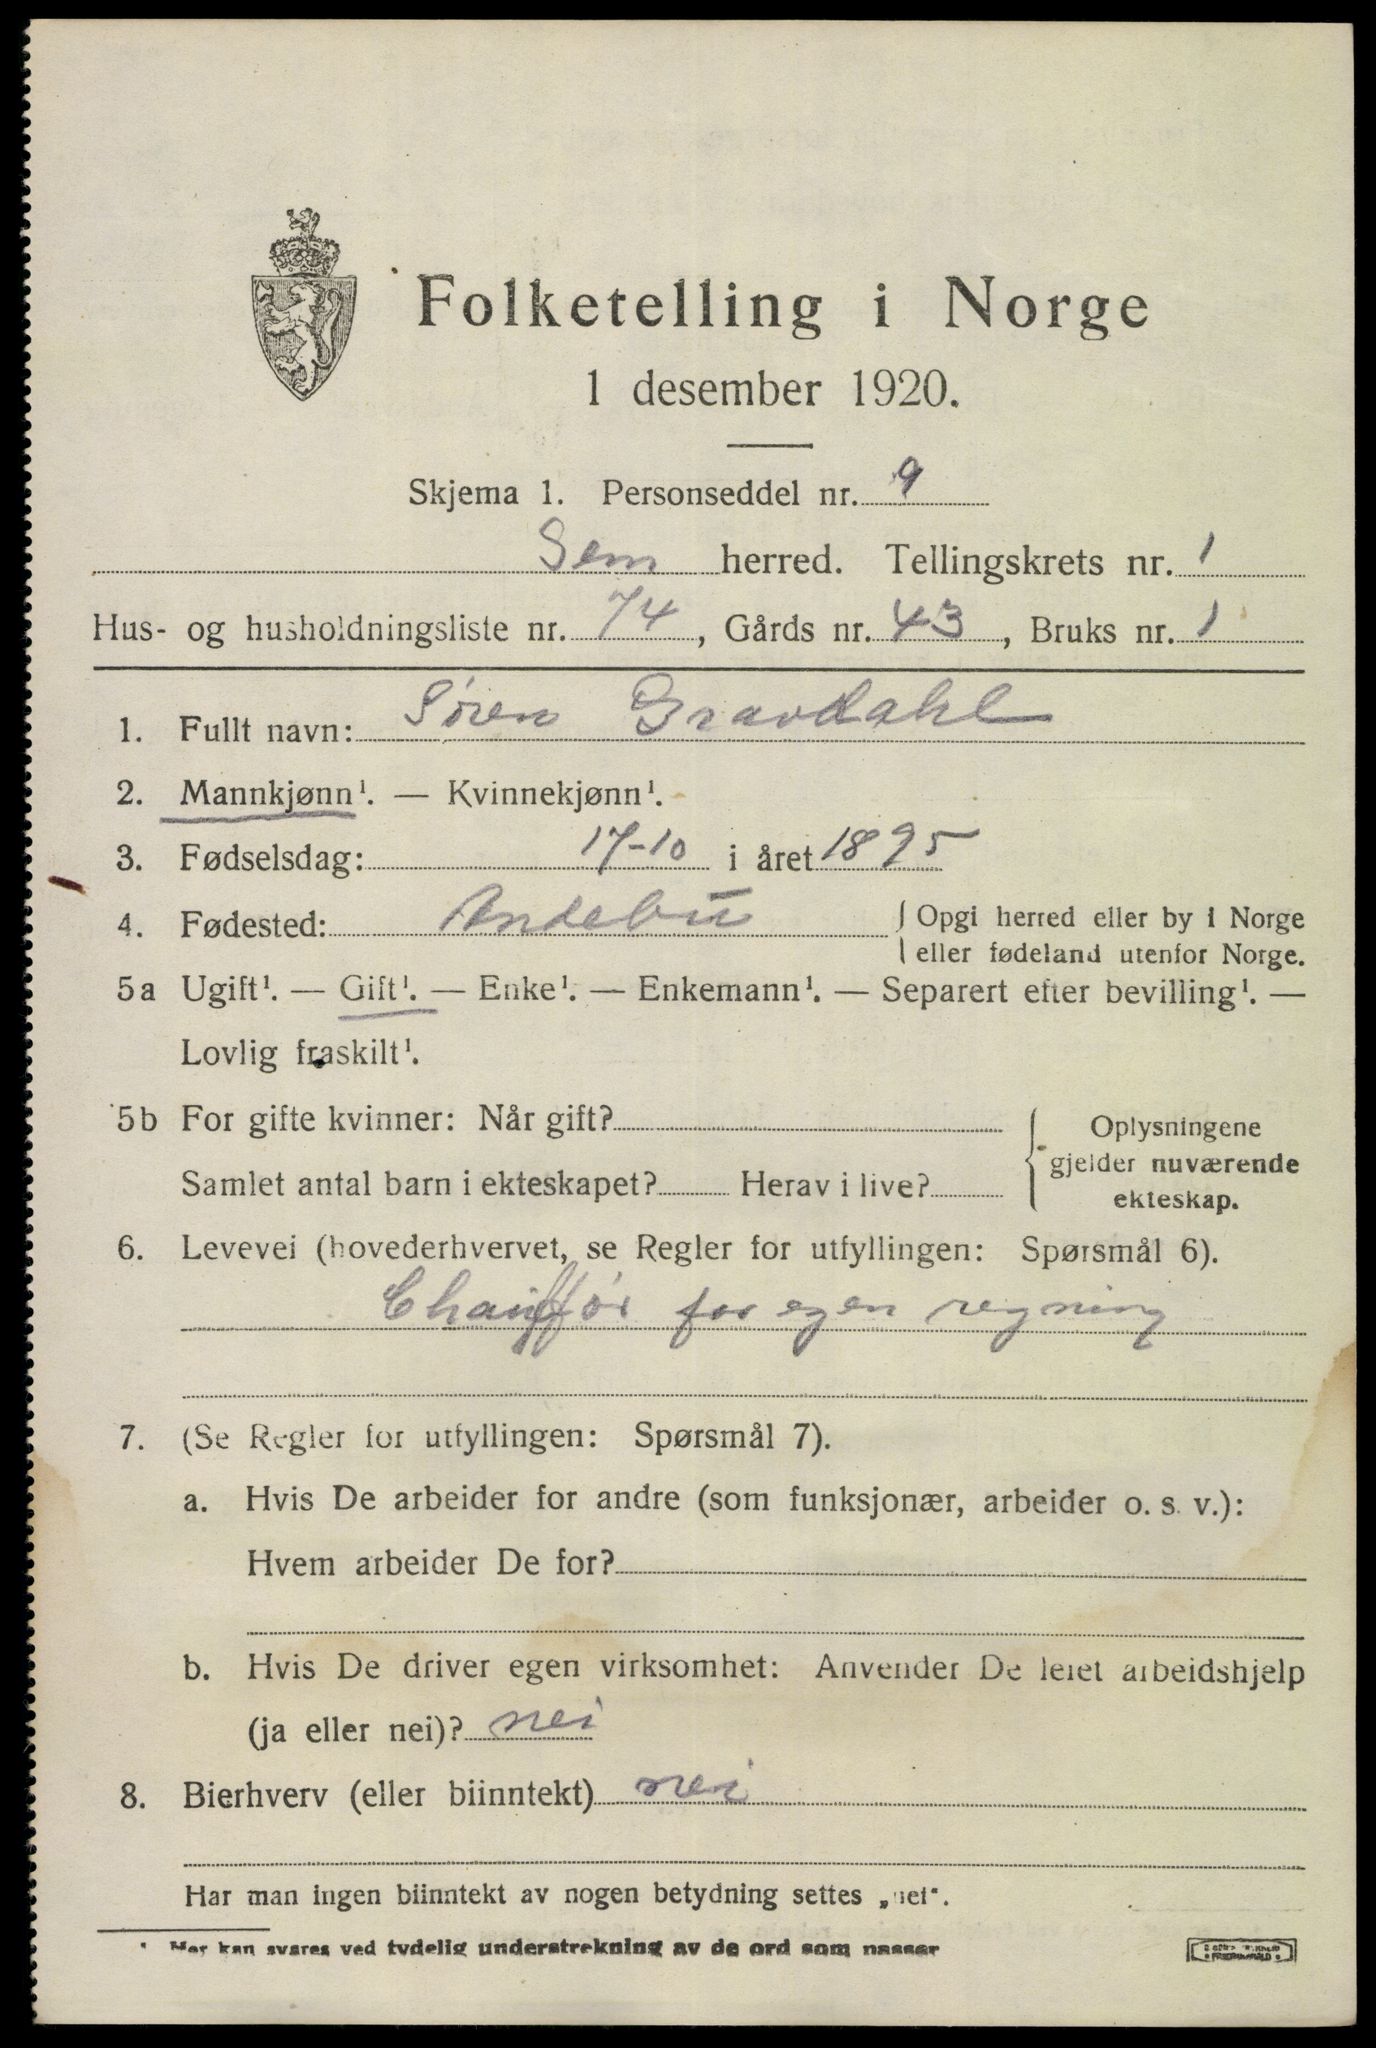 Folketelling i Norge
1 desember 1920.
Skjema 1. Personseddel nr. 9
Sem herred. Tellingskrets nr. 1
Hus- og husholdningsliste nr. 74, Gårds nr. 43, Bruks nr. 1
1. Fullt navn: Søren Gravdahl
2. Mannkjønn¹. — Kvinnekjønn¹.
3. Fødselsdag: 17-10 i året 1895
4. Fødested: Andebu { Opgi herred eller by i Norge
eller fødeland utenfor Norge.
5a Ugift¹. — Gift¹. — Enke¹. — Enkemann¹. — Separert efter bevilling¹. —
Lovlig fraskilt¹.
5b For gifte kvinner: Når gift?
Samlet antal barn i ekteskapet? Herav i live?
Oplysningene
gjelder nuværende
ekteskap.
6. Levevei (hovederhvervet, se Regler for utfyllingen: Spørsmål 6).
Chauffør for egen regning
7. (Se Regler for utfyllingen: Spørsmål 7).
a. Hvis De arbeider for andre (som funksjonær, arbeider o. s. v.):
Hvem arbeider De for?
b. Hvis De driver egen virksomhet: Anvender De leiet arbeidshjelp
(ja eller nei)? nei
8. Bierhverv (eller biinntekt) nei
Har man ingen biinntekt av nogen betydning settes „nei“.
¹ Her kan svares ved tydelig understrekning av de ord som passer